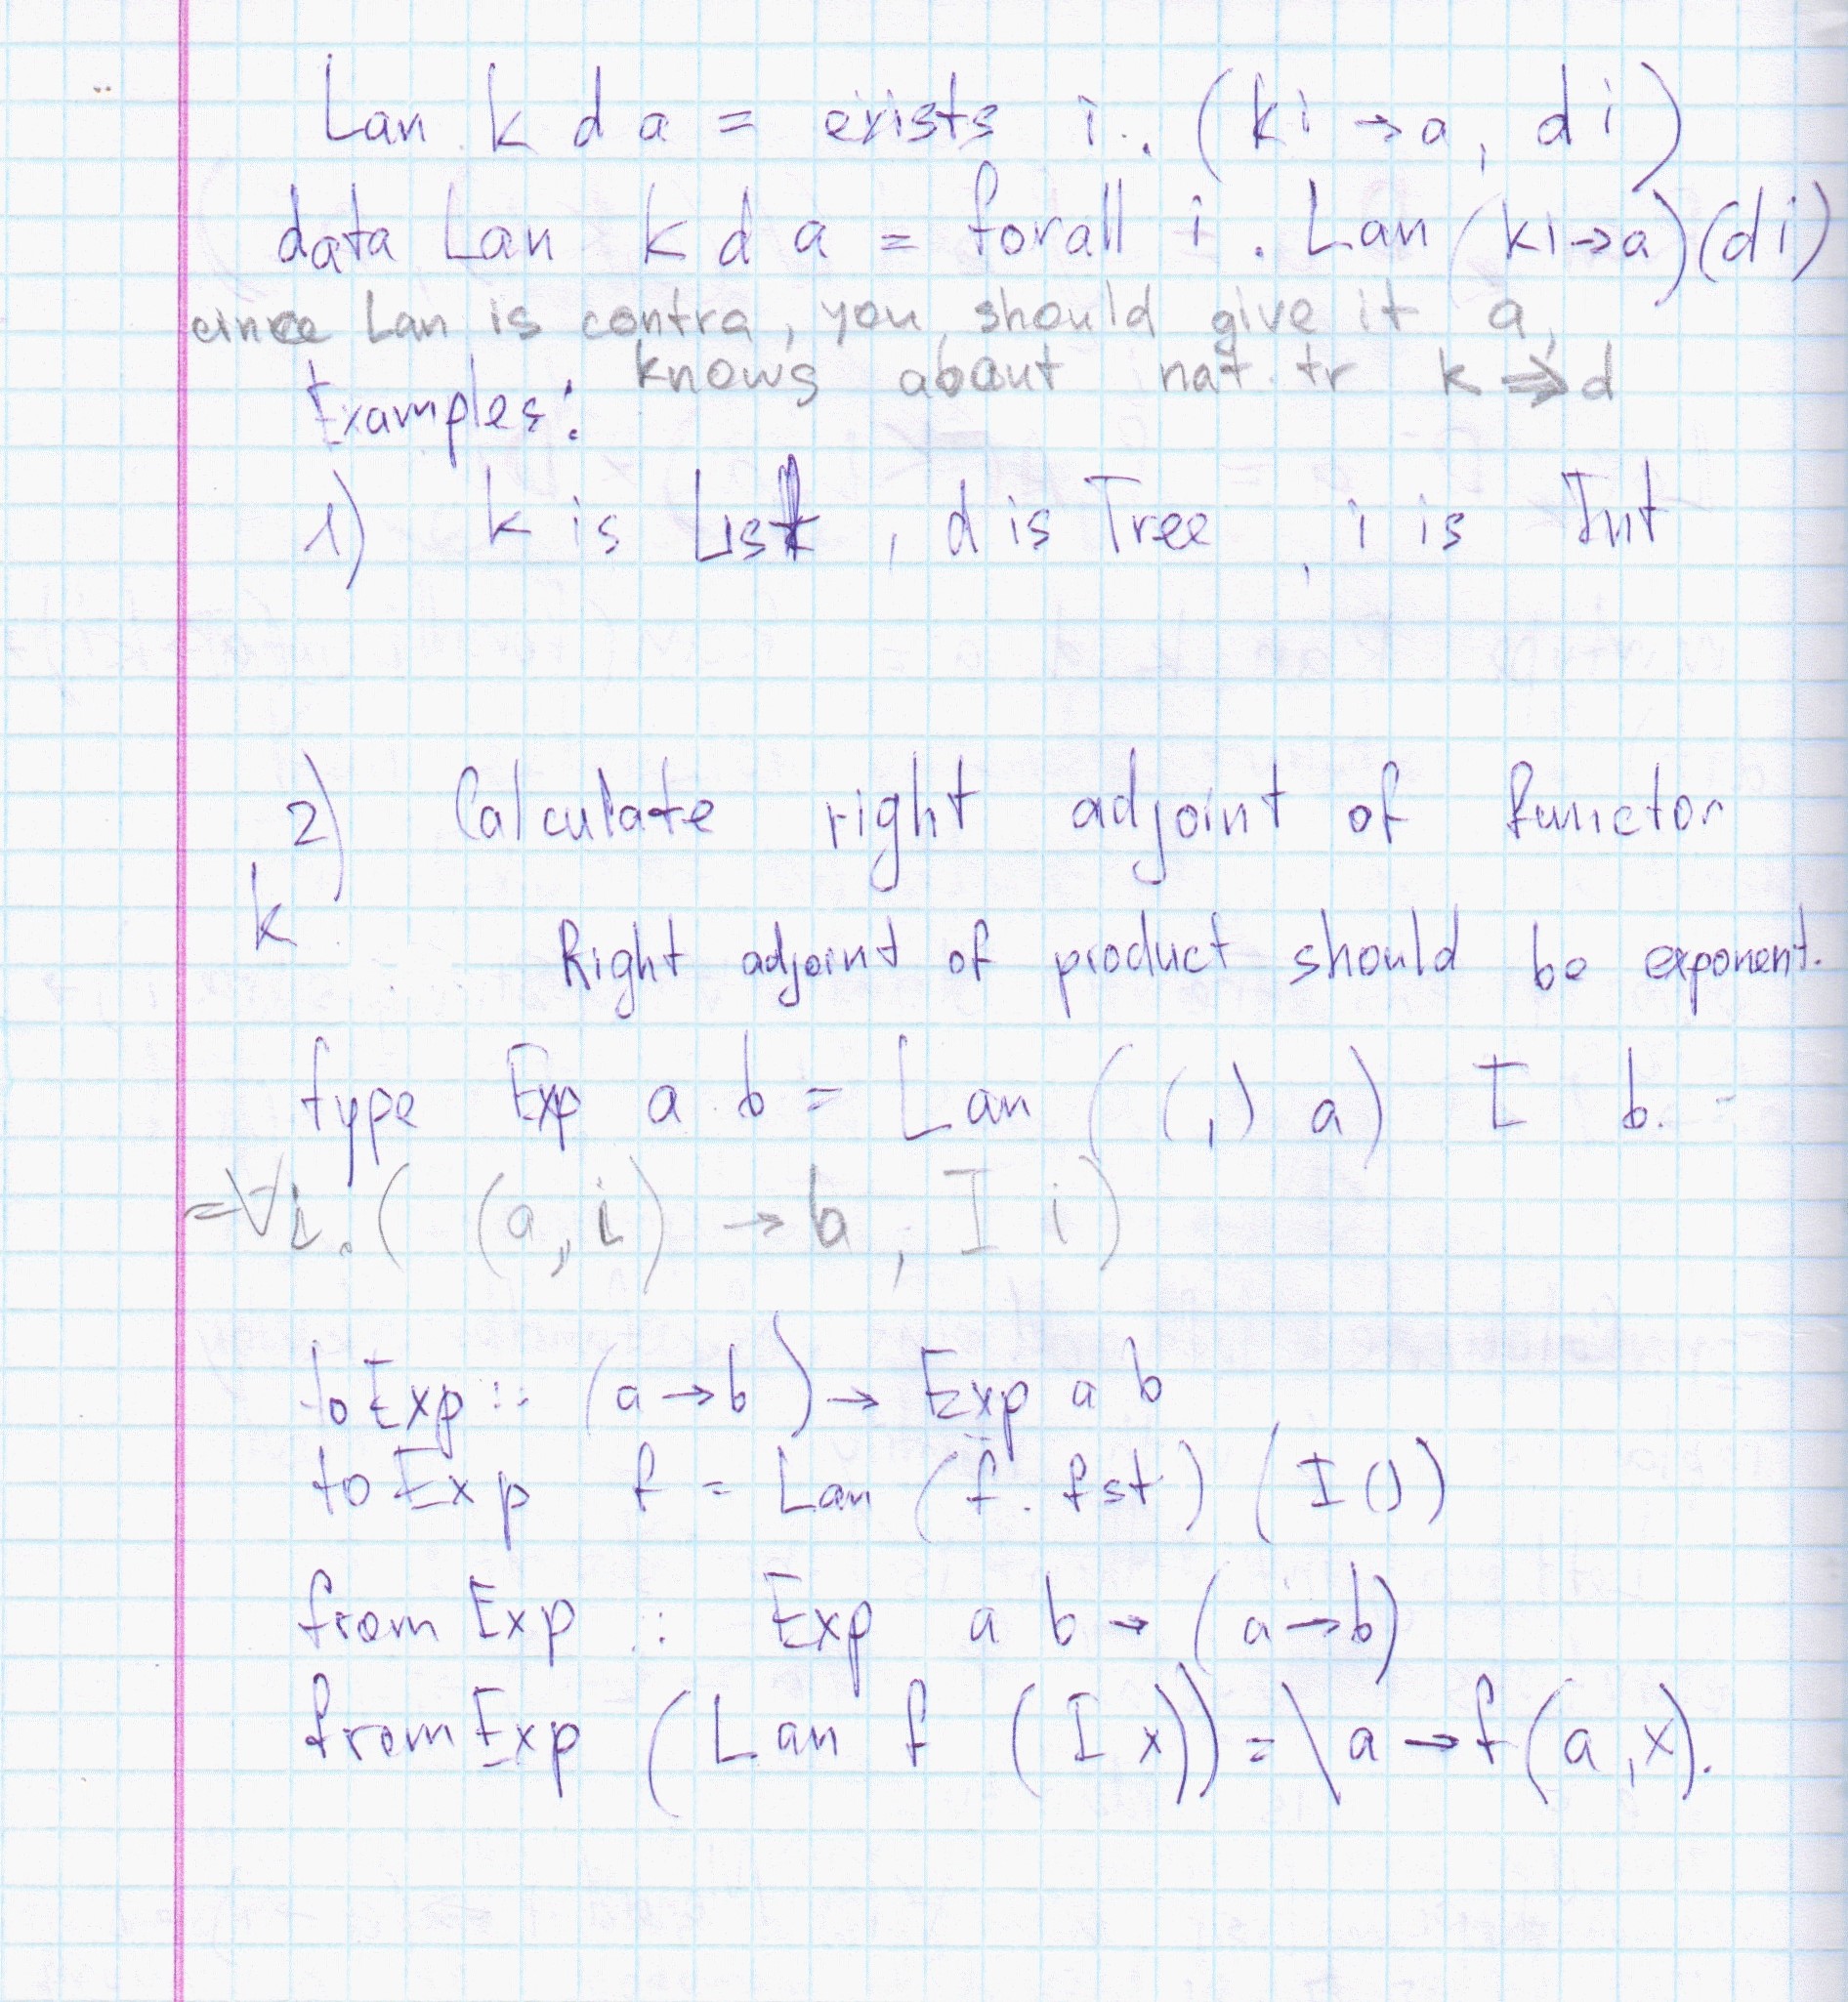 Lan k d a = exists i. (k i → a, d i)
data Lan k d a = forall i. Lan (k i → a) (d i)
since Lan is contra, you should give it a,
knows about nat. tr k ⇒ d
Examples:
1) k is List, d is Tree, i is Int
2) Calculate right adjoint of functor
k.
Right adjoint of product should be exponent.
type Exp a b = Lan ((,) a) I b. =
= ∀i. ((a, i) → b, I i)
toExp :: (a → b) → Exp a b
toExp f = Lan (f . fst) (I ())
fromExp :: Exp a b → (a → b)
fromExp (Lan f (I x)) = \a → f (a, x).